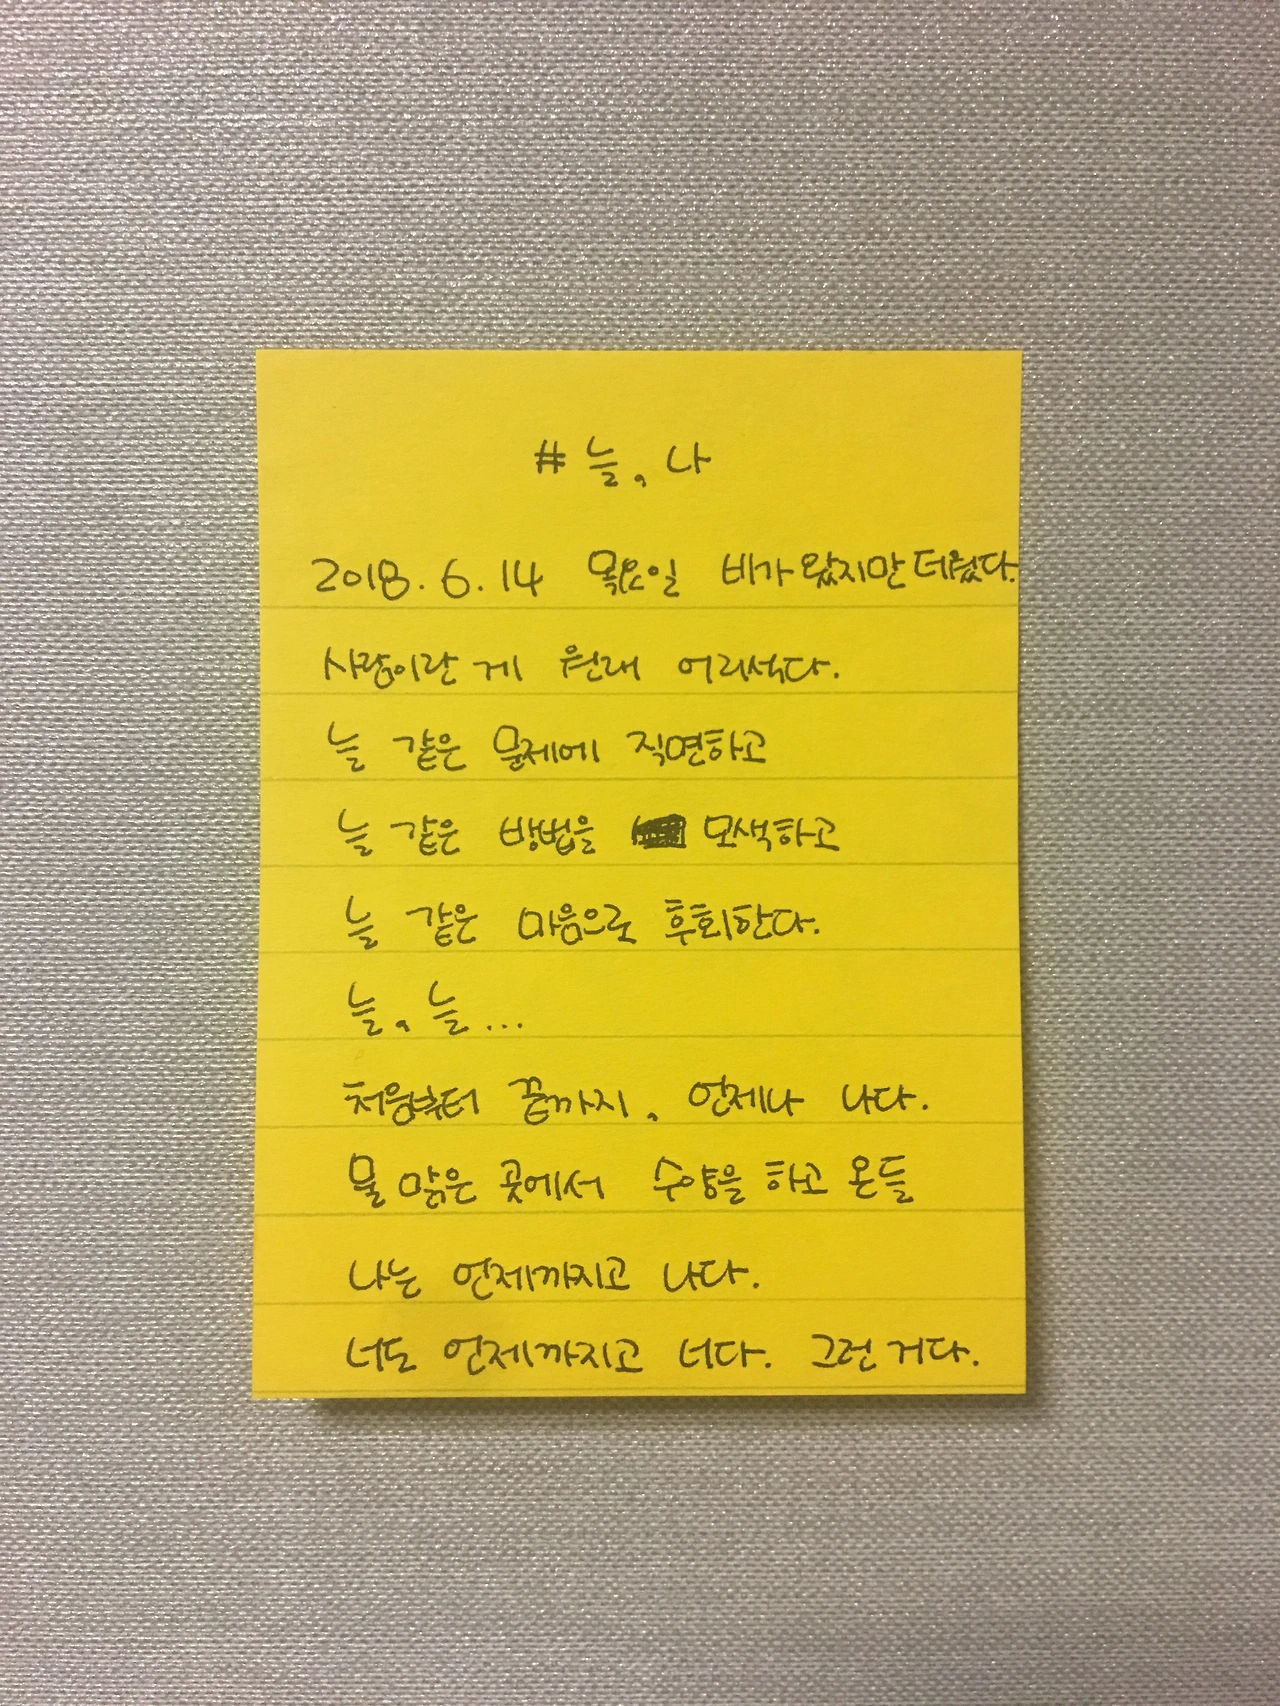 # 늘, 나
2018. 6. 14 목요일 비가 왔지만 더웠다.
사람이란 게 원래 어리석다.
늘 같은 문제에 직면하고
늘 같은 방법을 모색하고
늘 같은 마음으로 후회한다.
늘, 늘...
처음부터 끝까지, 언제나 나다.
물 맑은 곳에서 수양을 하고 온들
나는 언제까지고 나다.
너도 언제까지고 너다. 그런 거다.